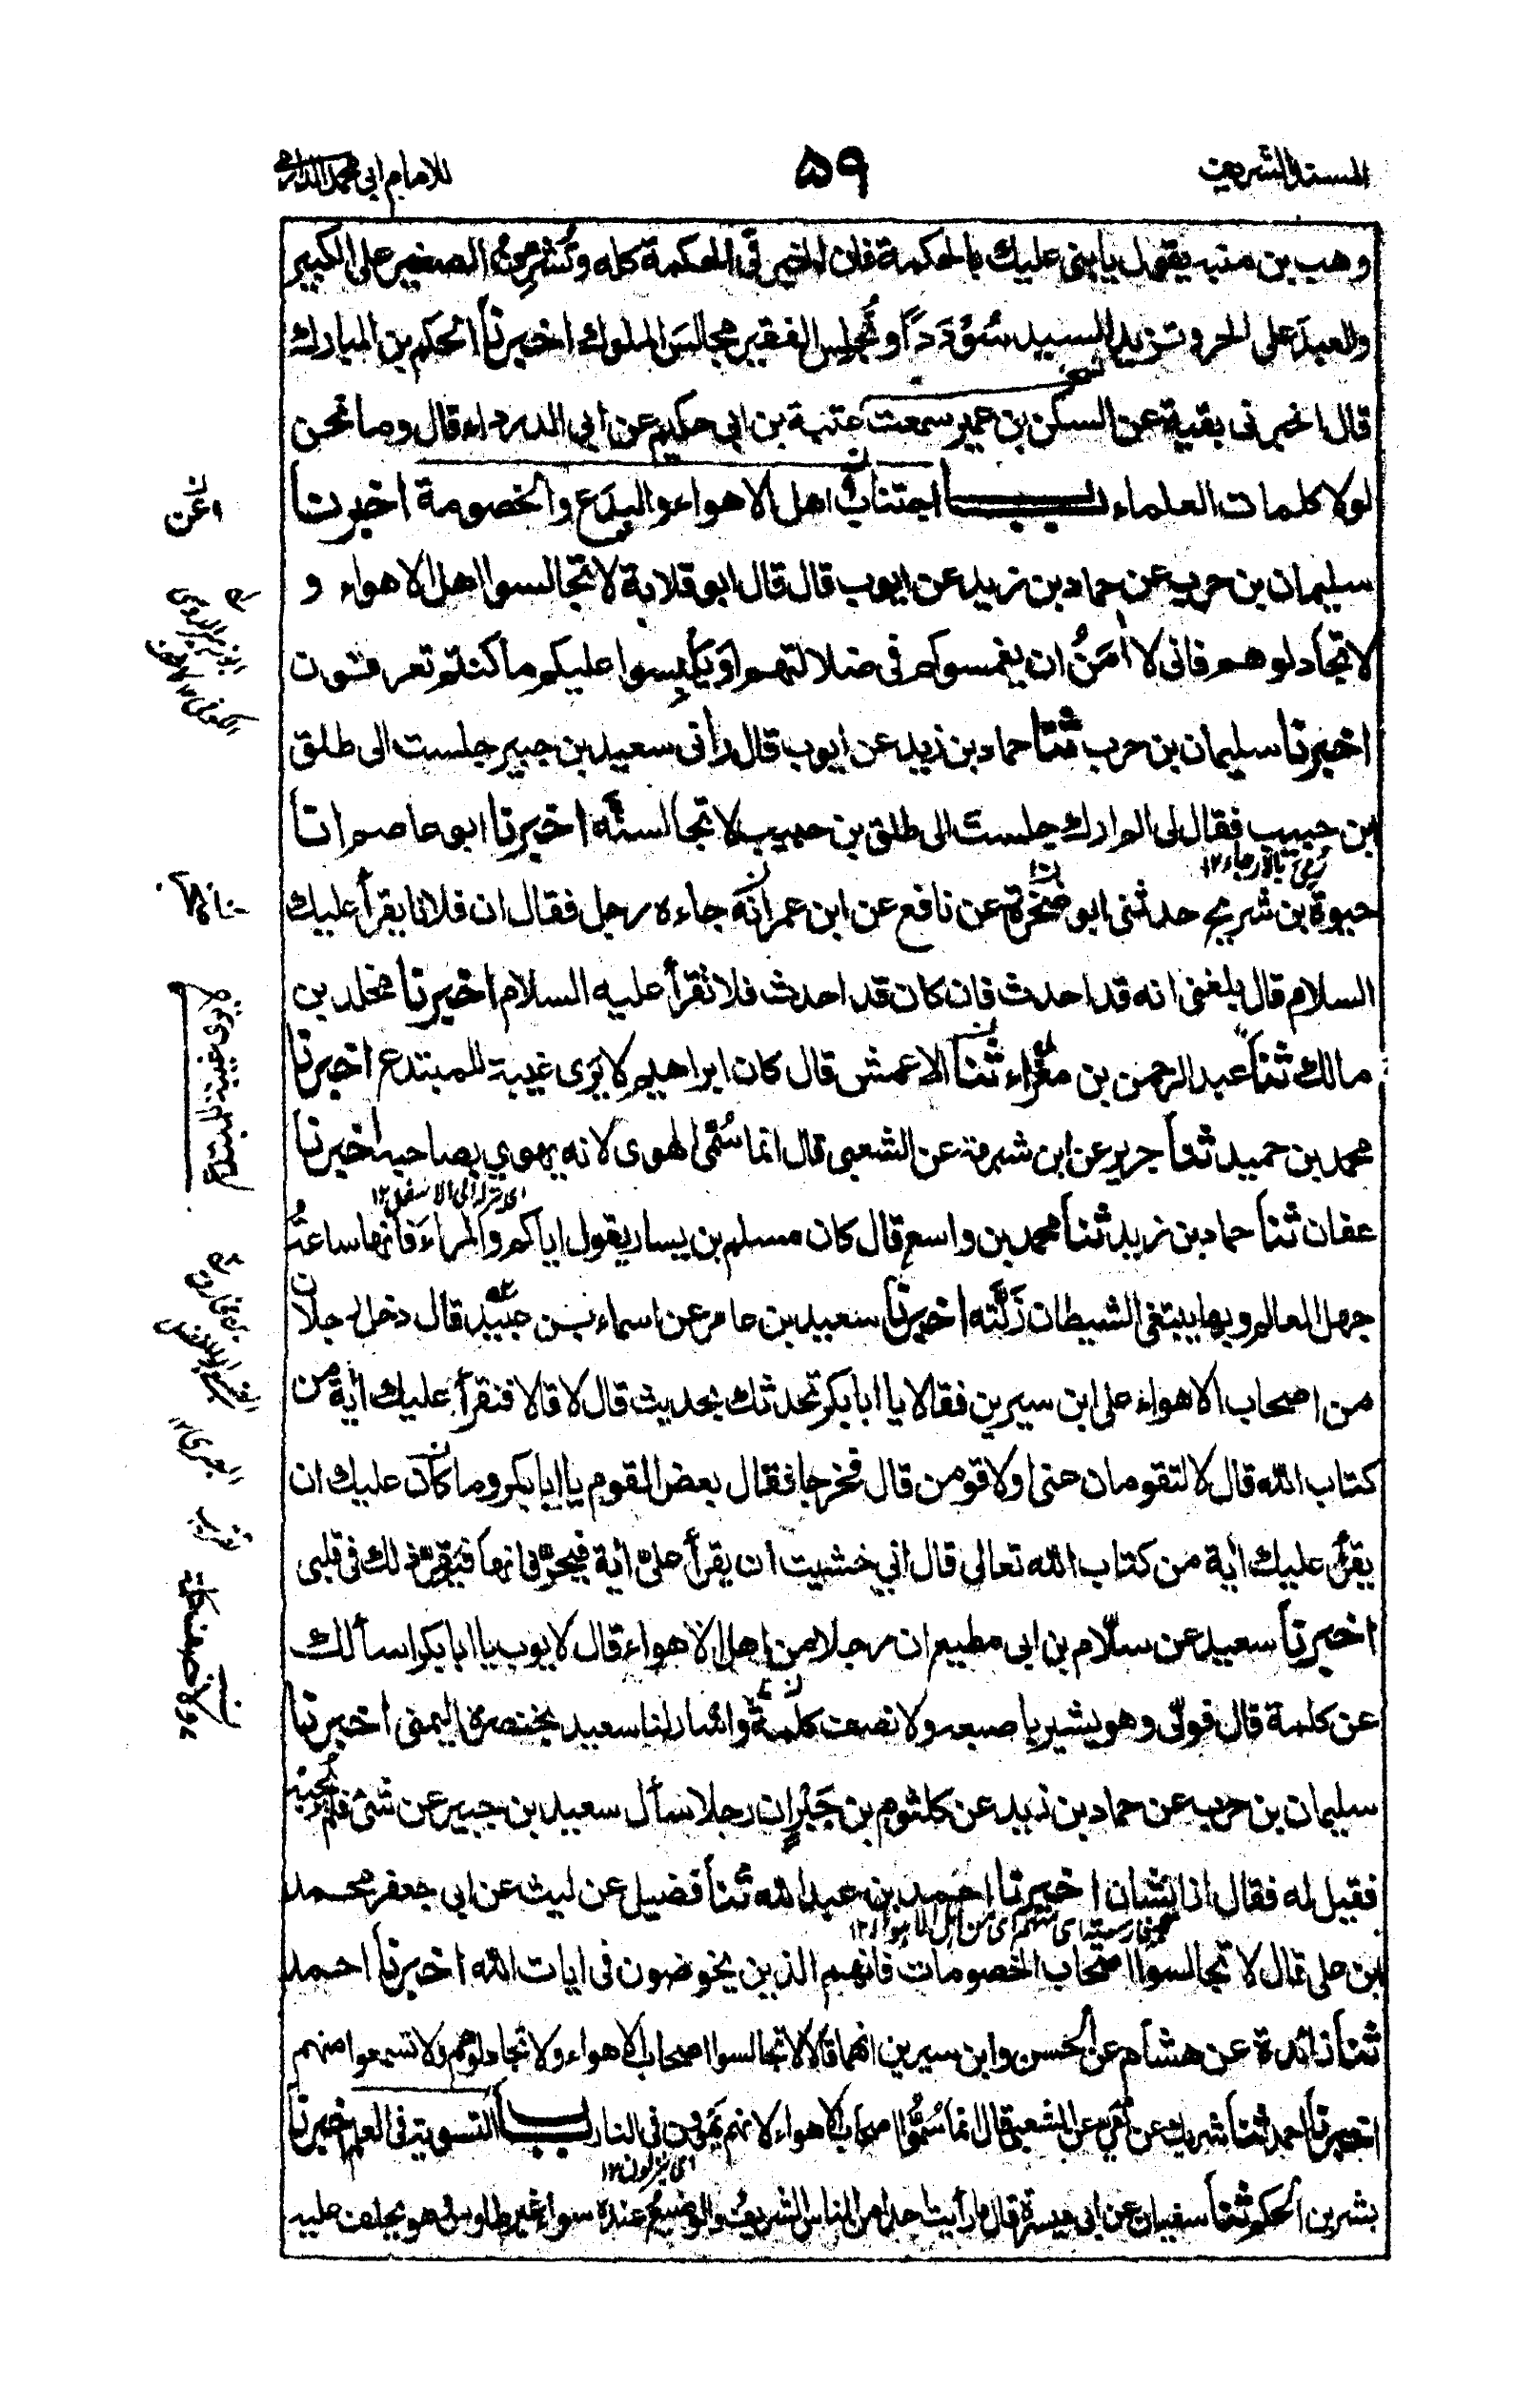 المسند الشريف
٥٩
للامام ابى محمد الدارمى
وهب بن منبه يقول يا بنى عليك بالحكمة فان الخير فى الحكمة كله وتُشرِّفُ الصغير على الكبير
والعبدَ على الحر وتزيد السيد سُوْدَدًا وتُجلِس الفقير مجالسَ الملوك اخبرنا الحكم بن المبارك
قال اخبرنى بقية عن السكن بن عمير سمعت عتبة بن ابى حكيم عن ابى الدرداء قال وما نحن
لولا كلمات العلماء باب اجتناب اهل الاهواء والبدع والخصومة اخبرنا
سليمان بن حرب عن حماد بن زيد عن ايوب قال قال ابو قلابة لا تجالسوا اهل الاهواء و
لا تجادلوهم فانى لا اٰمَنُ ان يغمسوكم فى ضلالتهم او يَلْبِسوا عليكم ما كنتم تعرفون
اخبرنا سليمان بن حرب ثنا حماد بن زيد عن ايوب قال رأنى سعيد بن جبير جلست الى طلق
بن حبيب فقال لى الم ارك جلست الى طلق بن حبيب لا تجالسنّه اخبرنا ابو عاصم انا
حيوة بن شريح حدثنى ابو صخرة عن نافع عن ابن عمر انّه جاءه رجل فقال ان فلانا يقرأ عليك
السلام قال بلغنى انه قد احدث فان كان قد احدث فلا تقرأ عليه السلام اخبرنا مخلد بن
مالك ثنا عبد الرحمن بن مغراء ثنا الاعمش قال كان ابراهيم لا يَرَى غيبة للمبتدع اخبرنا
محمد بن حميد ثنا جرير عن ابن شبرمة عن الشعبى قال انما سُمّى الهوى لانه يهوي بصاحبه اخبرنا
اى ينزله الى الاسفل ١٢
عفان ثنا حماد بن زيد ثنا محمد بن واسع قال كان مسلم بن يسار يقول اياكم والمراءَ فانها ساعةُ
جهل العالم وبها يبتغى الشيطان زَلَّتَه اخبرنا سعيد بن عامر عن اسماء بن عبيد قال دخل رجلان
من اصحاب الاهواء على ابن سيرين فقالا يا ابا بكر نحدثك بحديث قال لا قالا فنقرأ عليك اٰية من
كتاب الله قال لا لتقومان عنى او لاقومن قال فخرجا فقال بعض القوم يا ابا بكر وما كان عليك ان
يقرأ عليك اٰية من كتاب الله تعالى قال انى خشيت ان يقرأ علىّ اٰية فيحرّفانها فيَقِرّ ذلك فى قلبى
اخبرنا سعيد عن سلّام بن ابى مطيع ان رجلا من اهل الاهواء قال لايوب يا ابا بكر اسألك
عن كلمة قال فولّى وهو يشير باصبعه ولا نصف كلمةٍ واشار لنا سعيد بخنصره اليمنى اخبرنا
سليمان بن حرب عن حماد بن زيد عن كلثوم بن جَبْرٍ ان رجلا سأل سعيد بن جبير عن شئ فلم يُجِبْه
فقيل له فقال ازايشان اخبرنا احمد بن عبد الله ثنا فضيل عن ليث عن ابى جعفر محمد
بن على قال لا تجالسوا اصحاب الخصومات فانهم الذين يخوضون فى ايات الله اخبرنا احمد
ثنا زائدة عن هشام عن الحسن وابن سيرين انهما قالا لا تجالسوا اصحاب الاهواء ولا تجادلوهم ولا تسمعوا منهم
اخبرنا احمد ثنا شريك عن عن الشعبى قال انما سُمُّوا اصحاب الاهواء لانهم يَهْوُون فى النار باب التسوية فى العلم اخبرنا
اى ينزلون ١٢
بشر بن الحكم ثنا سفيان عن ابن ميسرة قال ما رأيت احدا من الناس الشريف والوضيع عنده سواء غير طاوس وهو يحلف عليه
لا يرى غيبة للمبتدع